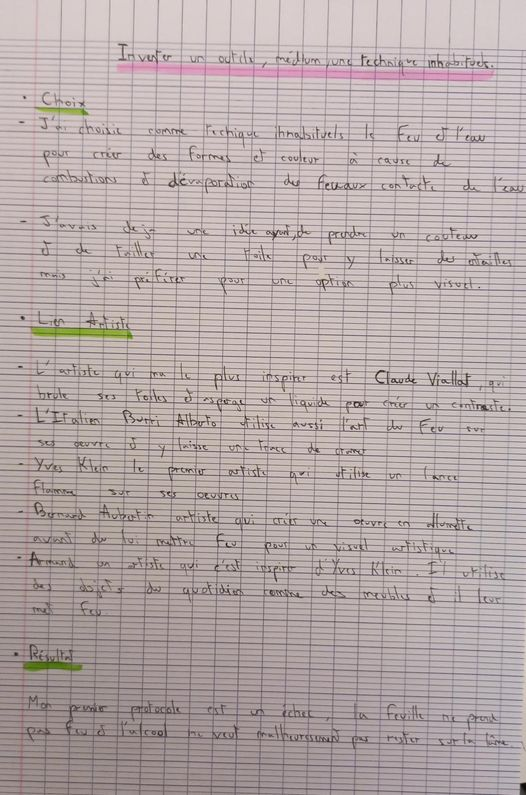 Inventer un outils, médium, une technique inhabituels.
• Choix
- J'ai choisie comme technique inhabituels le Feu et l'eau
pour créer des formes et couleur à cause de
combustions et d'évaporation des feu aux contacte de l'eau
- J'avais deja une idée avant, de prendre un couteau
et de tailler une toile pour y laisser des entailles
mais j'ai préférer pour une option plus visuel.
• Lien Artiste
- L'artiste qui ma le plus inspirer est Claude Viallat, qui
brule ses toiles et asperge un liquide pour créer un contraste.
- L'Italien Burri Alberto utilise aussi l'art du Feu sur
ses oeuvre et y laisse une trace de
- Yves Klein le premier artiste qui utilise un lance
flamme sur ses oeuvres
- Bernard Aubertin artiste qui créer une oeuvre en allumette
avant de lui mettre Feu pour un visuel artistique
- Armand un artiste qui c'est inspirer d'Yves Klein. Il utilise
des objets du quotidien comme des meubles et il leur
met feu.
• Résultat
Mon premier protocole est un échec, la feuille ne prend
pas feu et l'alcool ne veut malheuresement pas rester sur la